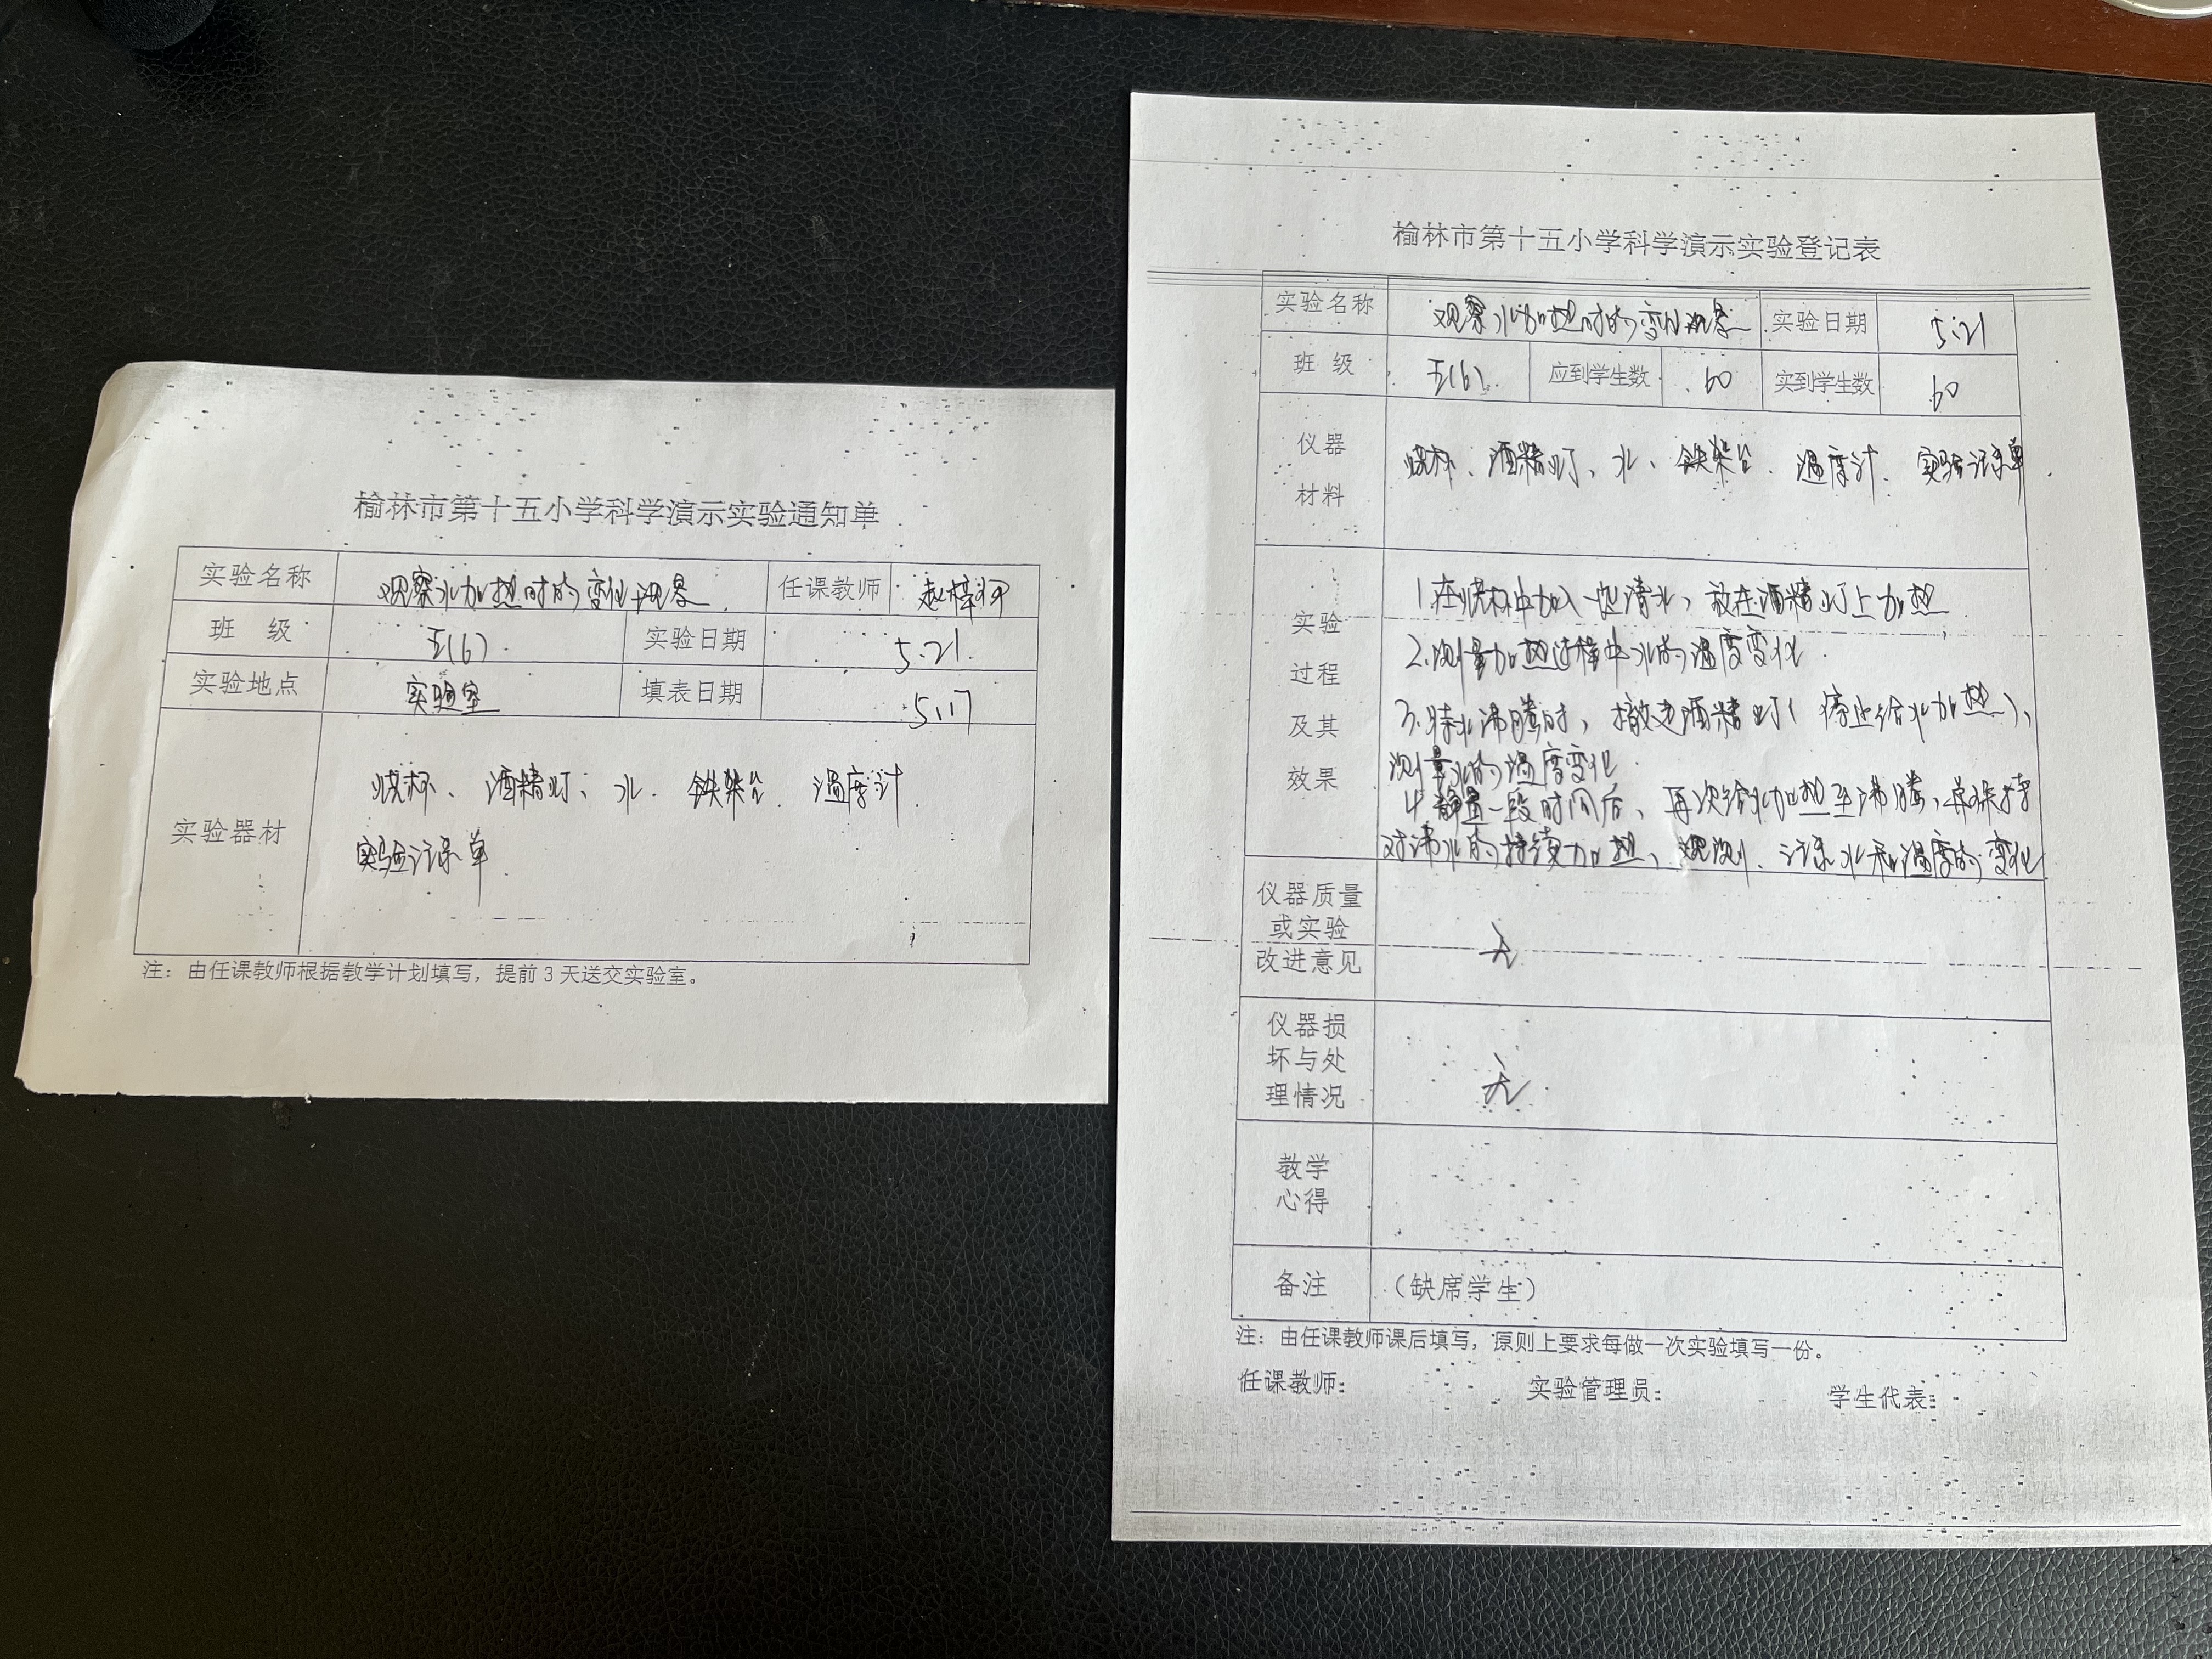 榆林市第十五小学科学演示实验通知单
实验名称 观察水加热时的变化现象 任课教师 赵梓
班 级 五(6) 实验日期 5.21
实验地点 实验室 填表日期 5.17
实验器材 烧杯、酒精灯、水、铁架台、温度计
实验记录单
注：由任课教师根据教学计划填写，提前3天送交实验室。
榆林市第十五小学科学演示实验登记表
实验名称 观察水加热时的变化现象 实验日期 5.21
班 级 五(6) 应到学生数 60 实到学生数 60
仪器
材料
烧杯、酒精灯、水、铁架台、温度计、实验记录单
实验
过程
及其
效果
1.在烧杯中加入一些清水，放在酒精灯上加热
2.测量加热过程中水的温度变化.
3.待水沸腾时，撤走酒精灯(停止给水加热)，
测量水的温度变化.
4.静置一段时间后，再次给水加热至沸腾，并保持
对沸水的持续加热，观测、记录水和温度的变化
仪器质量
或实验
改进意见
无
仪器损
坏与处
理情况
无
教学
心得
备注 （缺席学生）
注：由任课教师课后填写，原则上要求每做一次实验填写一份。
任课教师： 实验管理员： 学生代表：